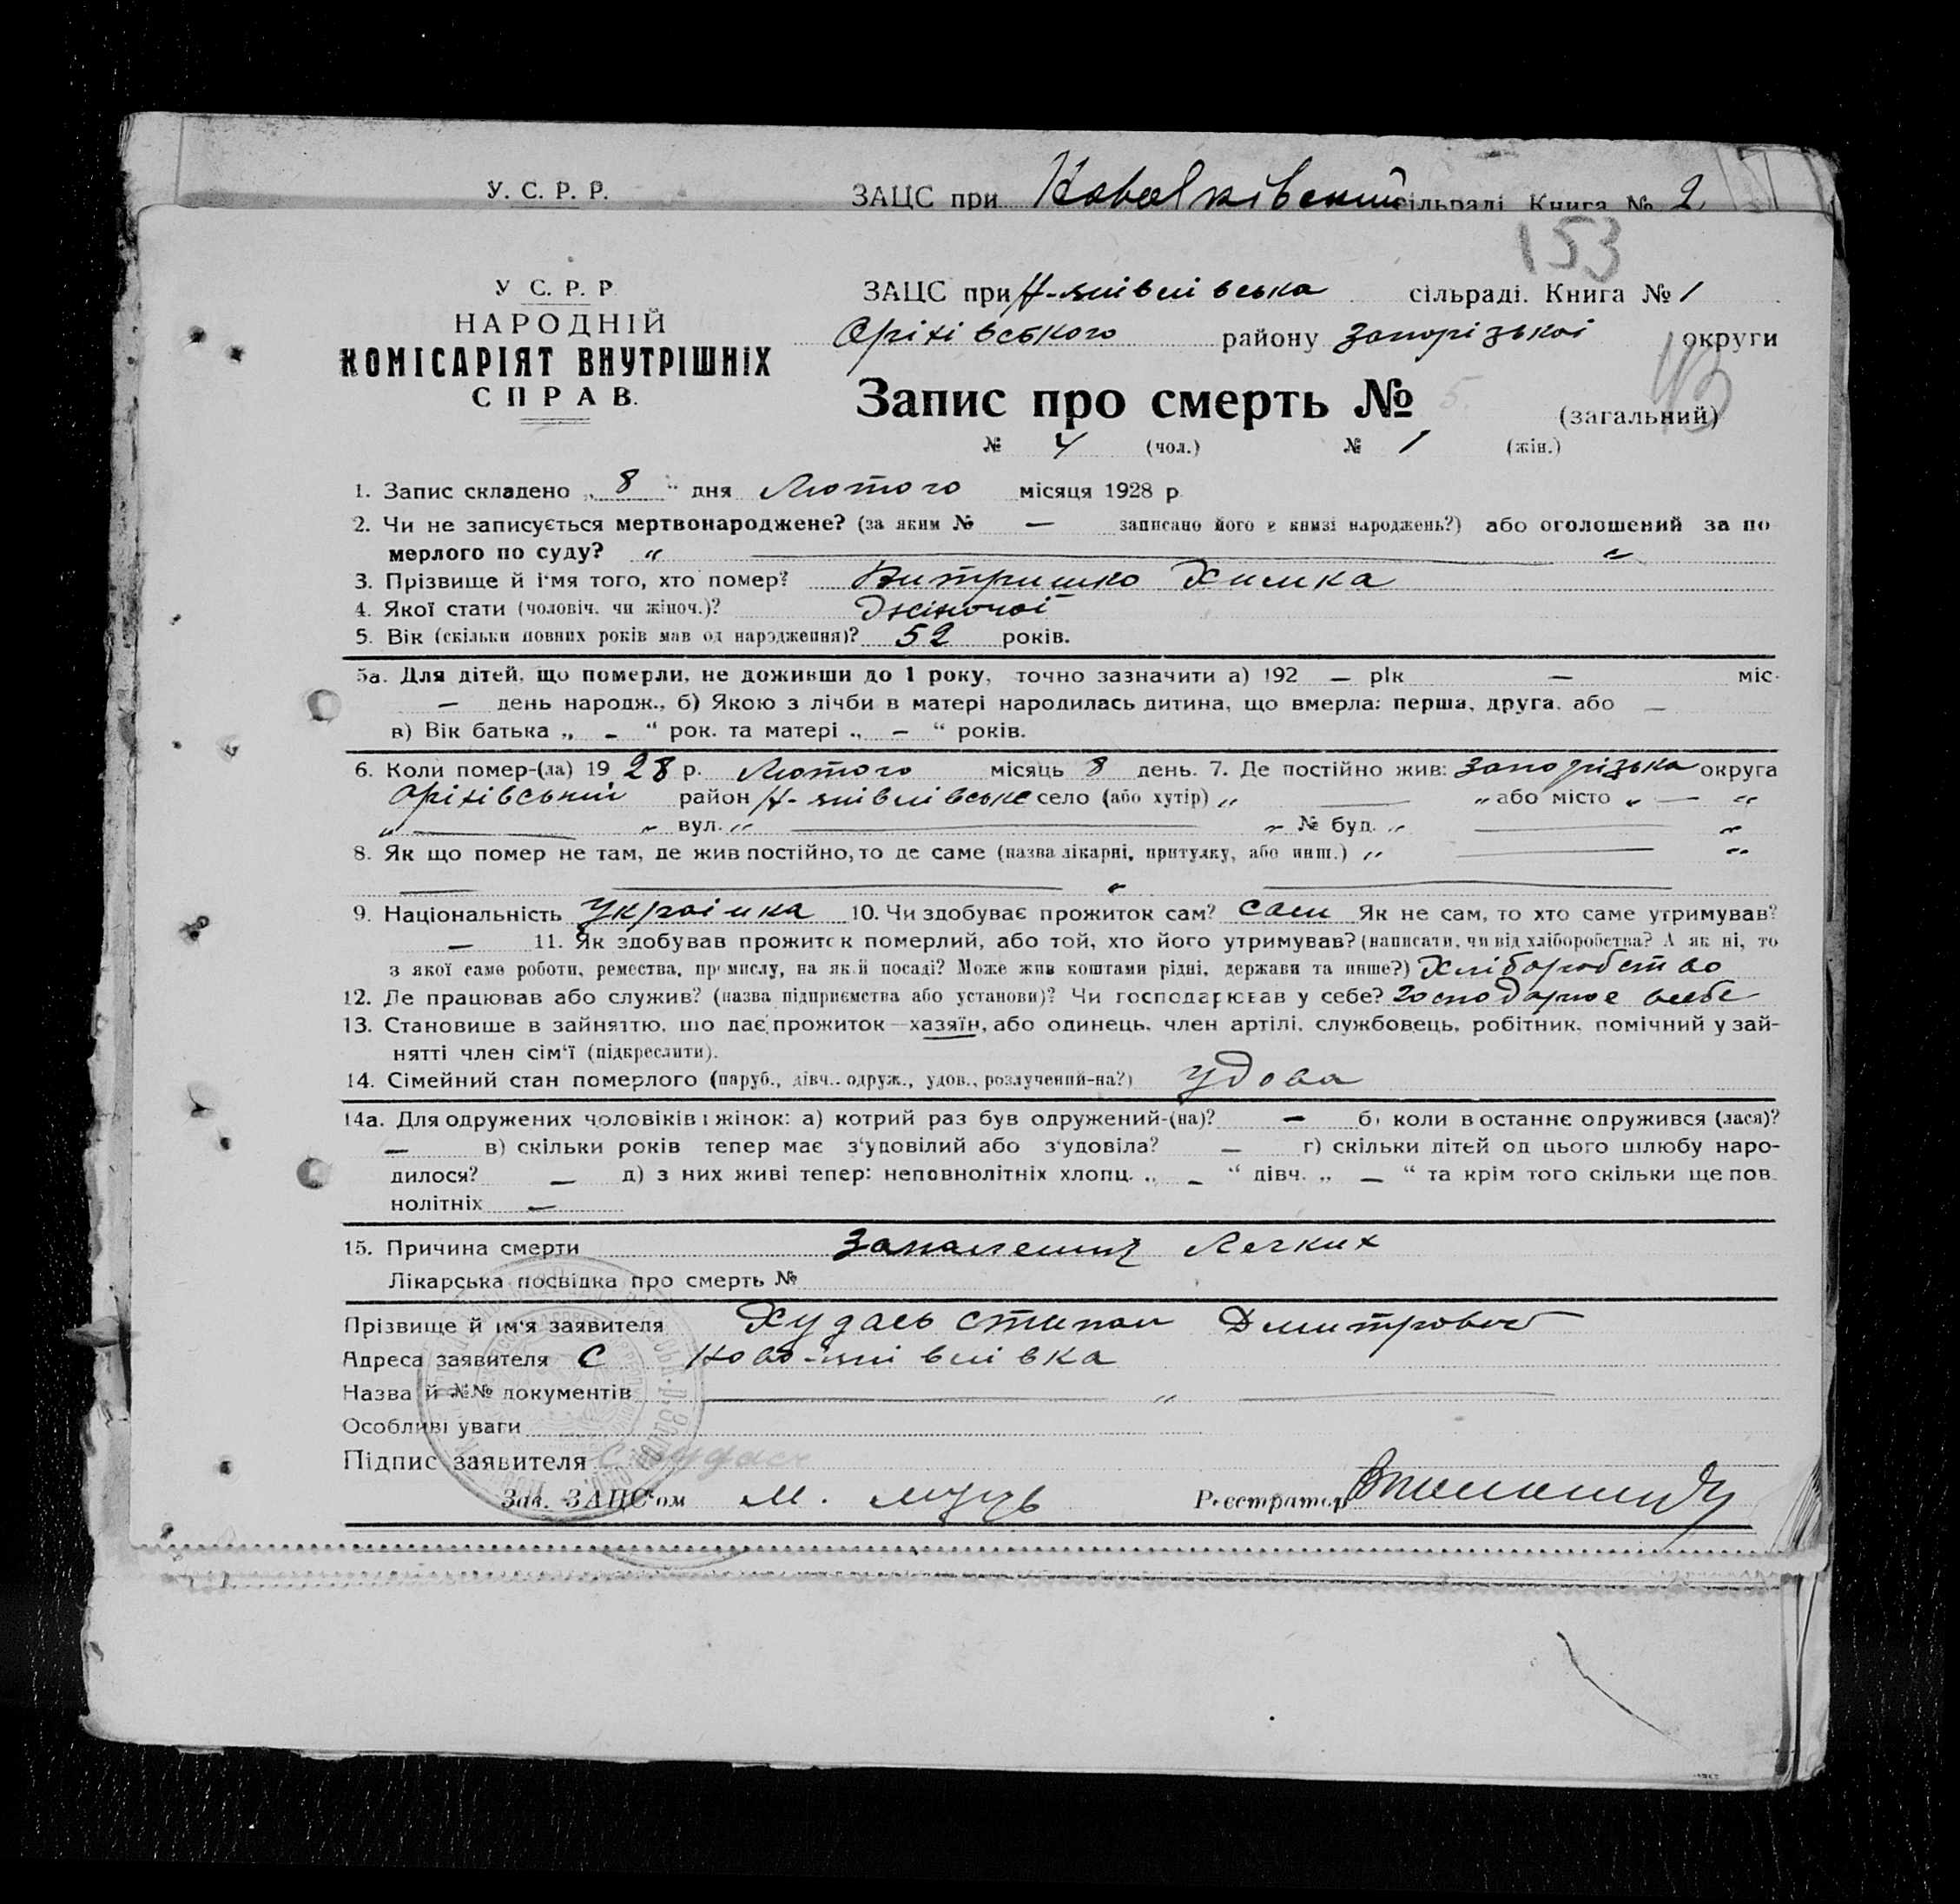 У. С. Р. Р. ЗАЦС при сільраді Книга № 2
153
У С. Р. Р
НАРОДНІЙ
КОМІСАРІЯТ ВНУТРІШНІХ
СПРАВ.
ЗАЦС при сільраді. Книга № 1
Оріхівського району Запорізької округи
43
Запис про смерть № 5. (загальний)
№ 4 (чол.) № 1 (жін.)
1. Запис складено „ 8 “ дня Лютого місяця 1928 р
2. Чи не записується мертвонароджене? (за яким № — записано його в книзі народжень?) або оголошений за по
мерлого по суду? „ — “
3. Прізвище й ім'я того, хто помер? Витришко Химка
4. Якої стати (чоловіч. чи жіноч.)? Жіночоі
5. Вік (скільки повних років мав од народження)? 52 років.
5а. Для дітей, що померли, не доживши до 1 року, точно зазначити а) 192 — рік — міс.
— день народж., б) Якою з лічби в матері народилась дитина, що вмерла: перша, друга, або —
в) Вік батька „ - “ рок. та матері „ — “ років.
6. Коли помер-(ла) 1928 р. Лютого місяць 8 день. 7. Де постійно жив: Запорізька округа
Оріхівський район село (або хутір) „ — „ або місто „ — “
„ — „ вул. „ — „ № буд. „ — „
8. Як що помер не там, де жив постійно, то де саме (назва лікарні, притулку, або инш.) „ — “
— — „ —
9. Національність Украінка 10. Чи здобуває прожиток сам? сам Як не сам, то хто саме утримував?
— 11. Як здобував прожиток померлий, або той, хто його утримував? (написати, чи від хліборобства? А як ні, то
з якої саме роботи, ремества, промислу, на якій посаді? Може жив коштами рідні, держави та инше?) Хліборобство
12. Де працював або служив? (назва підприємства або установи)? Чи господарював у себе? господарює в себе
13. Становище в зайняттю, що дає прожиток—хазяїн, або одинець, член артілі, службовець, робітник, помічний у зай-
нятті член сім‘ї (підкреслити).
14. Сімейний стан померлого (паруб., дівч., одруж., удов., розлучений-на?) Удова
14а. Для одружених чоловіків і жінок: а) котрий раз був одружений-(на)? — б) коли в останнє одружився (лася)?
— в) скільки років тепер має з‘удовілий або з‘удовіла? — г) скільки дітей од цього шлюбу наро-
дилося? — д) з них живі тепер: неповнолітніх хлопц. „ — “ дівч. „ — “ та крім того скільки ще пов
нолітніх —
15. Причина смерти Запалення Легких
Лікарська посвідка про смерть №
Прізвище й ім‘я заявителя Худась Степан Дмитрович
Адреса заявителя С
Назва й №№ документів — „ —
Особливі уваги
Підпис заявителя С Худась
Зав. ЗАЦС‘ом М. Реєстратор